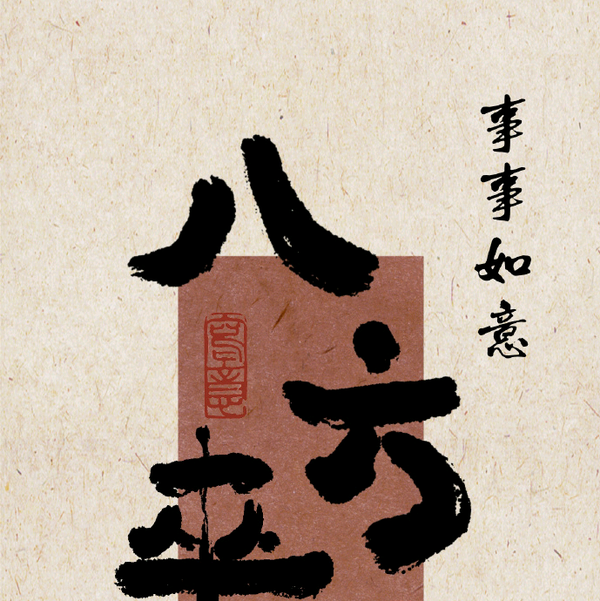 事事如意
八方来